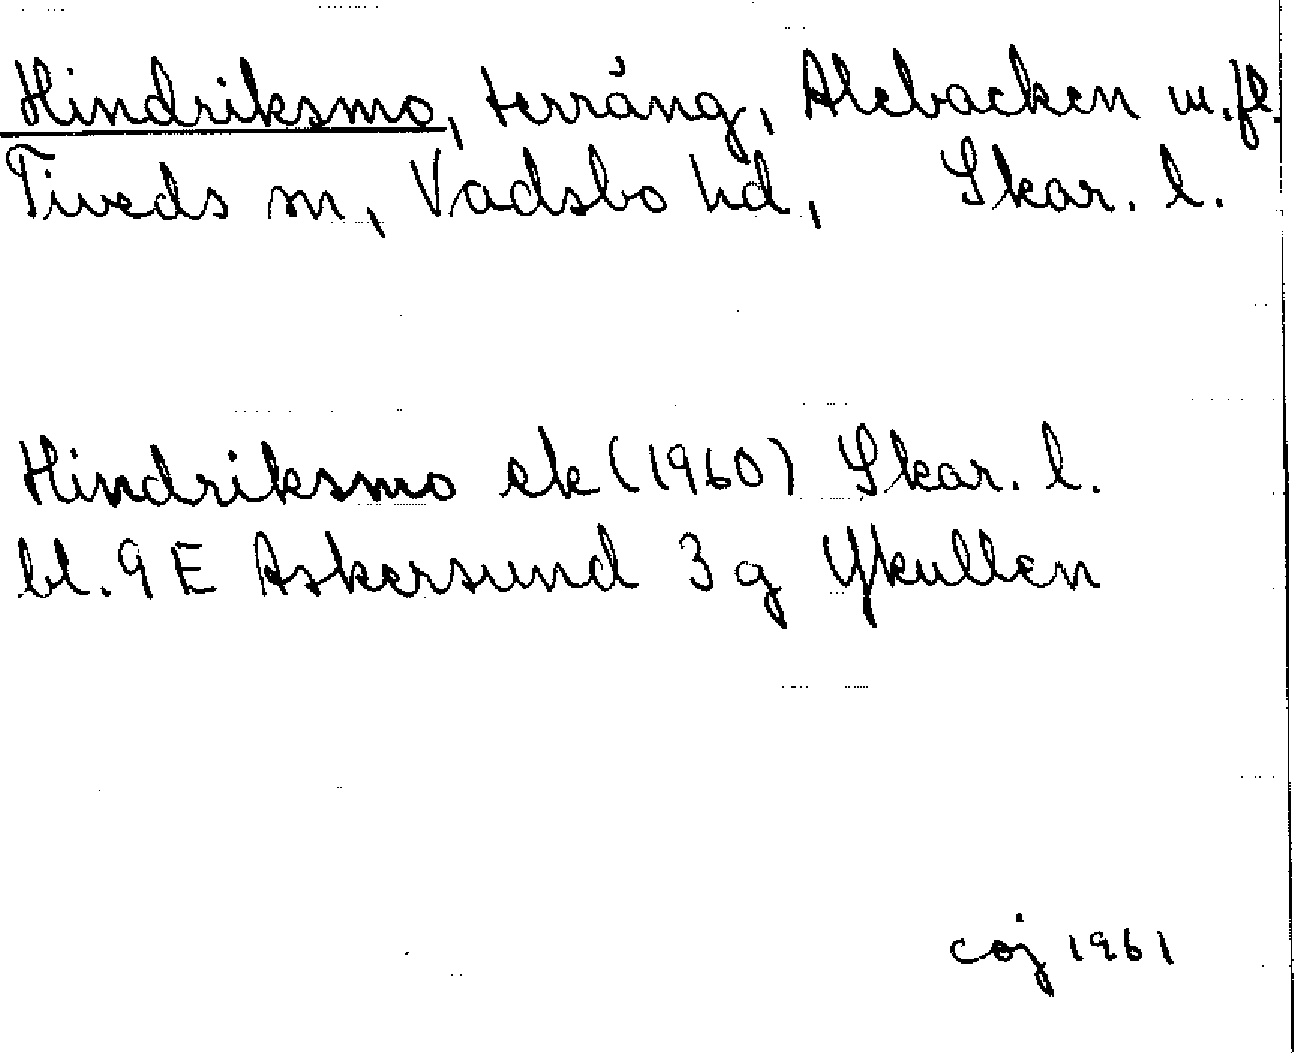 Hindriksmo, terräng, Alebacken m.fl.
Tiveds sn, Vadsbo hd, Skar. l.
Hindriksmo ek (1960) Skar. l.
bl. 9 E Askersund 3 g Ykullen
coj 1961